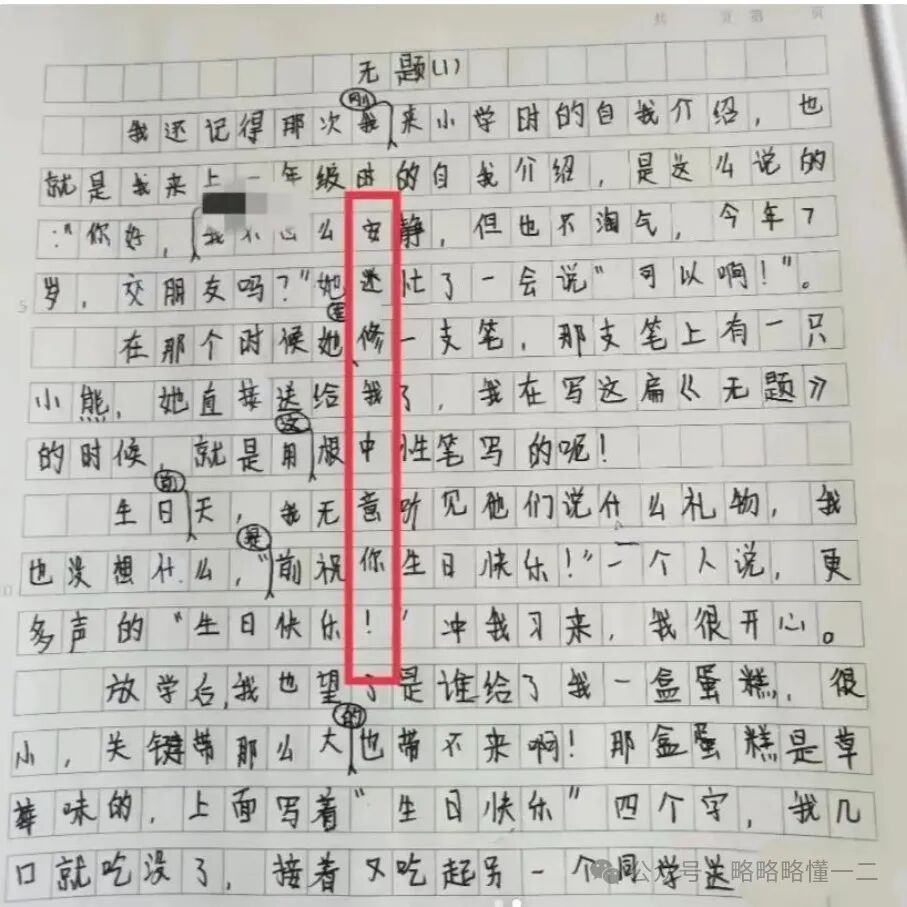 共 页 第 页
无题(1)
我还记得那次我刚来小学时的自我介绍，也
就是我来上一年级时的自我介绍，是这么说的
:"你好，我不怎么安静，但也不淘气，今年7
岁，交朋友吗？"她迷忙了一会说"可以啊！"。
在那个时候她在修一支笔，那支笔上有一只
小熊，她直接送给我了，我在写这扁《无题》
的时候，就是用这根中性笔写的呢！
生日前天，我无意听见他们说什么礼物，我
也没想什么，"是前祝你生日快乐！"一个人说，更
多声的"生日快乐！"冲我习来，我很开心。
放学后，我也望了是谁给了我一盒蛋糕，很
小，关键带那么大的也带不来啊！那盒蛋糕是草
莓味的，上面写着"生日快乐"四个字，我几
口就吃没了，接着又吃起另一个同学送
公众号·略略略懂一二